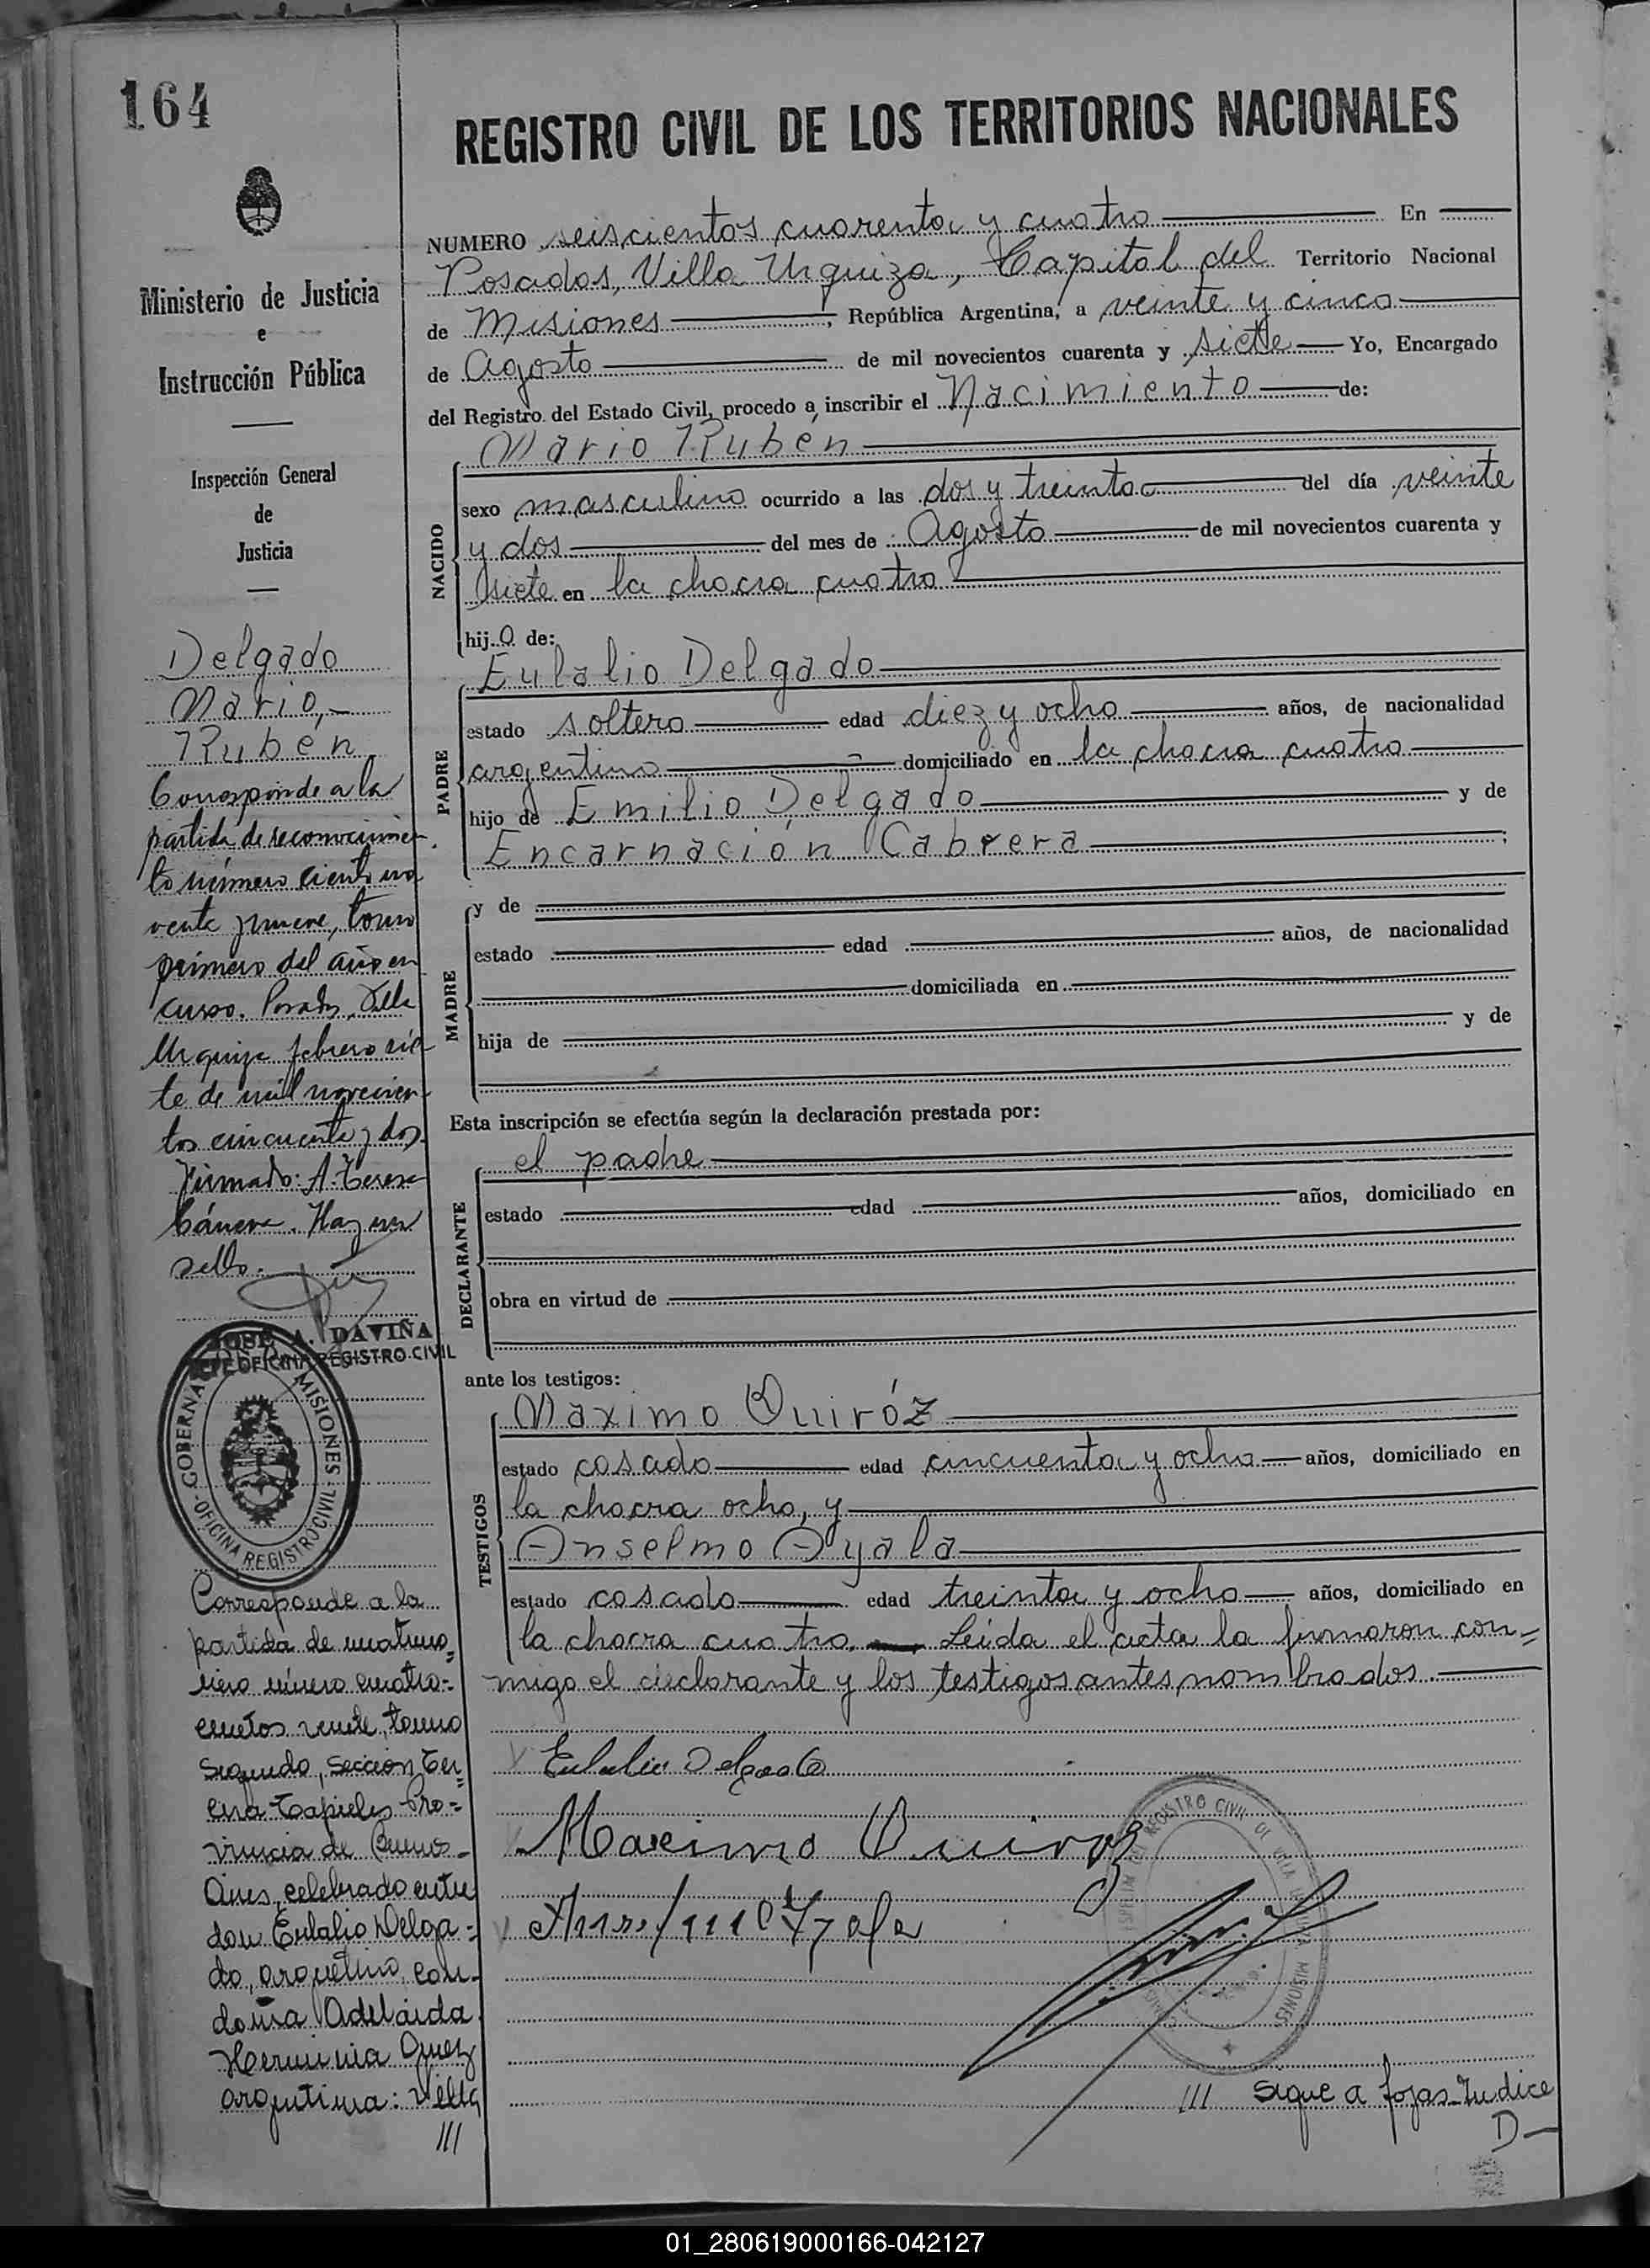 164
REGISTRO CIVIL DE LOS TERRITORIOS NACIONALES
Ministerio de Justicia
e
Instrucción Pública
Inspección General
de
Justicia
Delgado
Mario,-
Rubén
Corresponde a la
partida de reconocimien
to número ciento no
venta y nueve, tomo
primero del año en
curso. Posadas, Villa
Urquiza febrero sie
te de mil novecien-
tos cincuenta y dos.
Firmado: A. Teresa
Cánera. Hay un
sello.
JOSE A. DAVIÑA
JEFE OFICINA REGISTRO CIVIL
GOBERNA MISIONES
OFICINA REGISTRO CIVIL
Corresponde a la
partida de matrimo=
nio número cuatro=
cientos veinte, tomo
segundo, Sección Ter=
cera Tapiales Pro=
vincia de Buenos-
Aires, celebrado entre
don Eulalio Delga=
do, argentino, con-
doña Adelaida
Herminia
argentina: Villa
///
NUMERO seiscientos cuarenta y cuatro En
Posadas, Villa Urquiza, Capital del Territorio Nacional
de Misiones, República Argentina, a veinte y cinco
de Agosto de mil novecientos cuarenta y siete Yo, Encargado
del Registro del Estado Civil, procedo a inscribir el Nacimiento de:
Mario Rubén
NACIDO
sexo masculino ocurrido a las dos y treinta del día veinte
y dos del mes de Agosto de mil novecientos cuarenta y
siete en la chacra cuatro
hijo de:
PADRE
Eulalio Delgado
estado soltero edad diez y ocho años, de nacionalidad
argentino domiciliado en la chacra cuatro
hijo de Emilio Delgado y de
Encarnación Cabrera;
MADRE
y de
estado edad años, de nacionalidad
domiciliada en
hija de y de
Esta inscripción se efectúa según la declaración prestada por:
DECLARANTE
el padre
estado edad años, domiciliado en
obra en virtud de
ante los testigos:
TESTIGOS
Maximo Quiróz
estado casado edad cincuenta y ocho años, domiciliado en
la chacra ocho, y
Anselmo Ayala
estado casado edad treinta y ocho años, domiciliado en
la chacra cuatro. Leída el acta la firmaron con=
migo el declarante y los testigos antes nombrados.
Eulalio Delgado
Maximo Quiroz
Anselmo Ayala
REGISTRO CIVIL VILLA URQUIZA MISIONES
/// Sigue a fojas Indice
D-
01_280619000166-042127